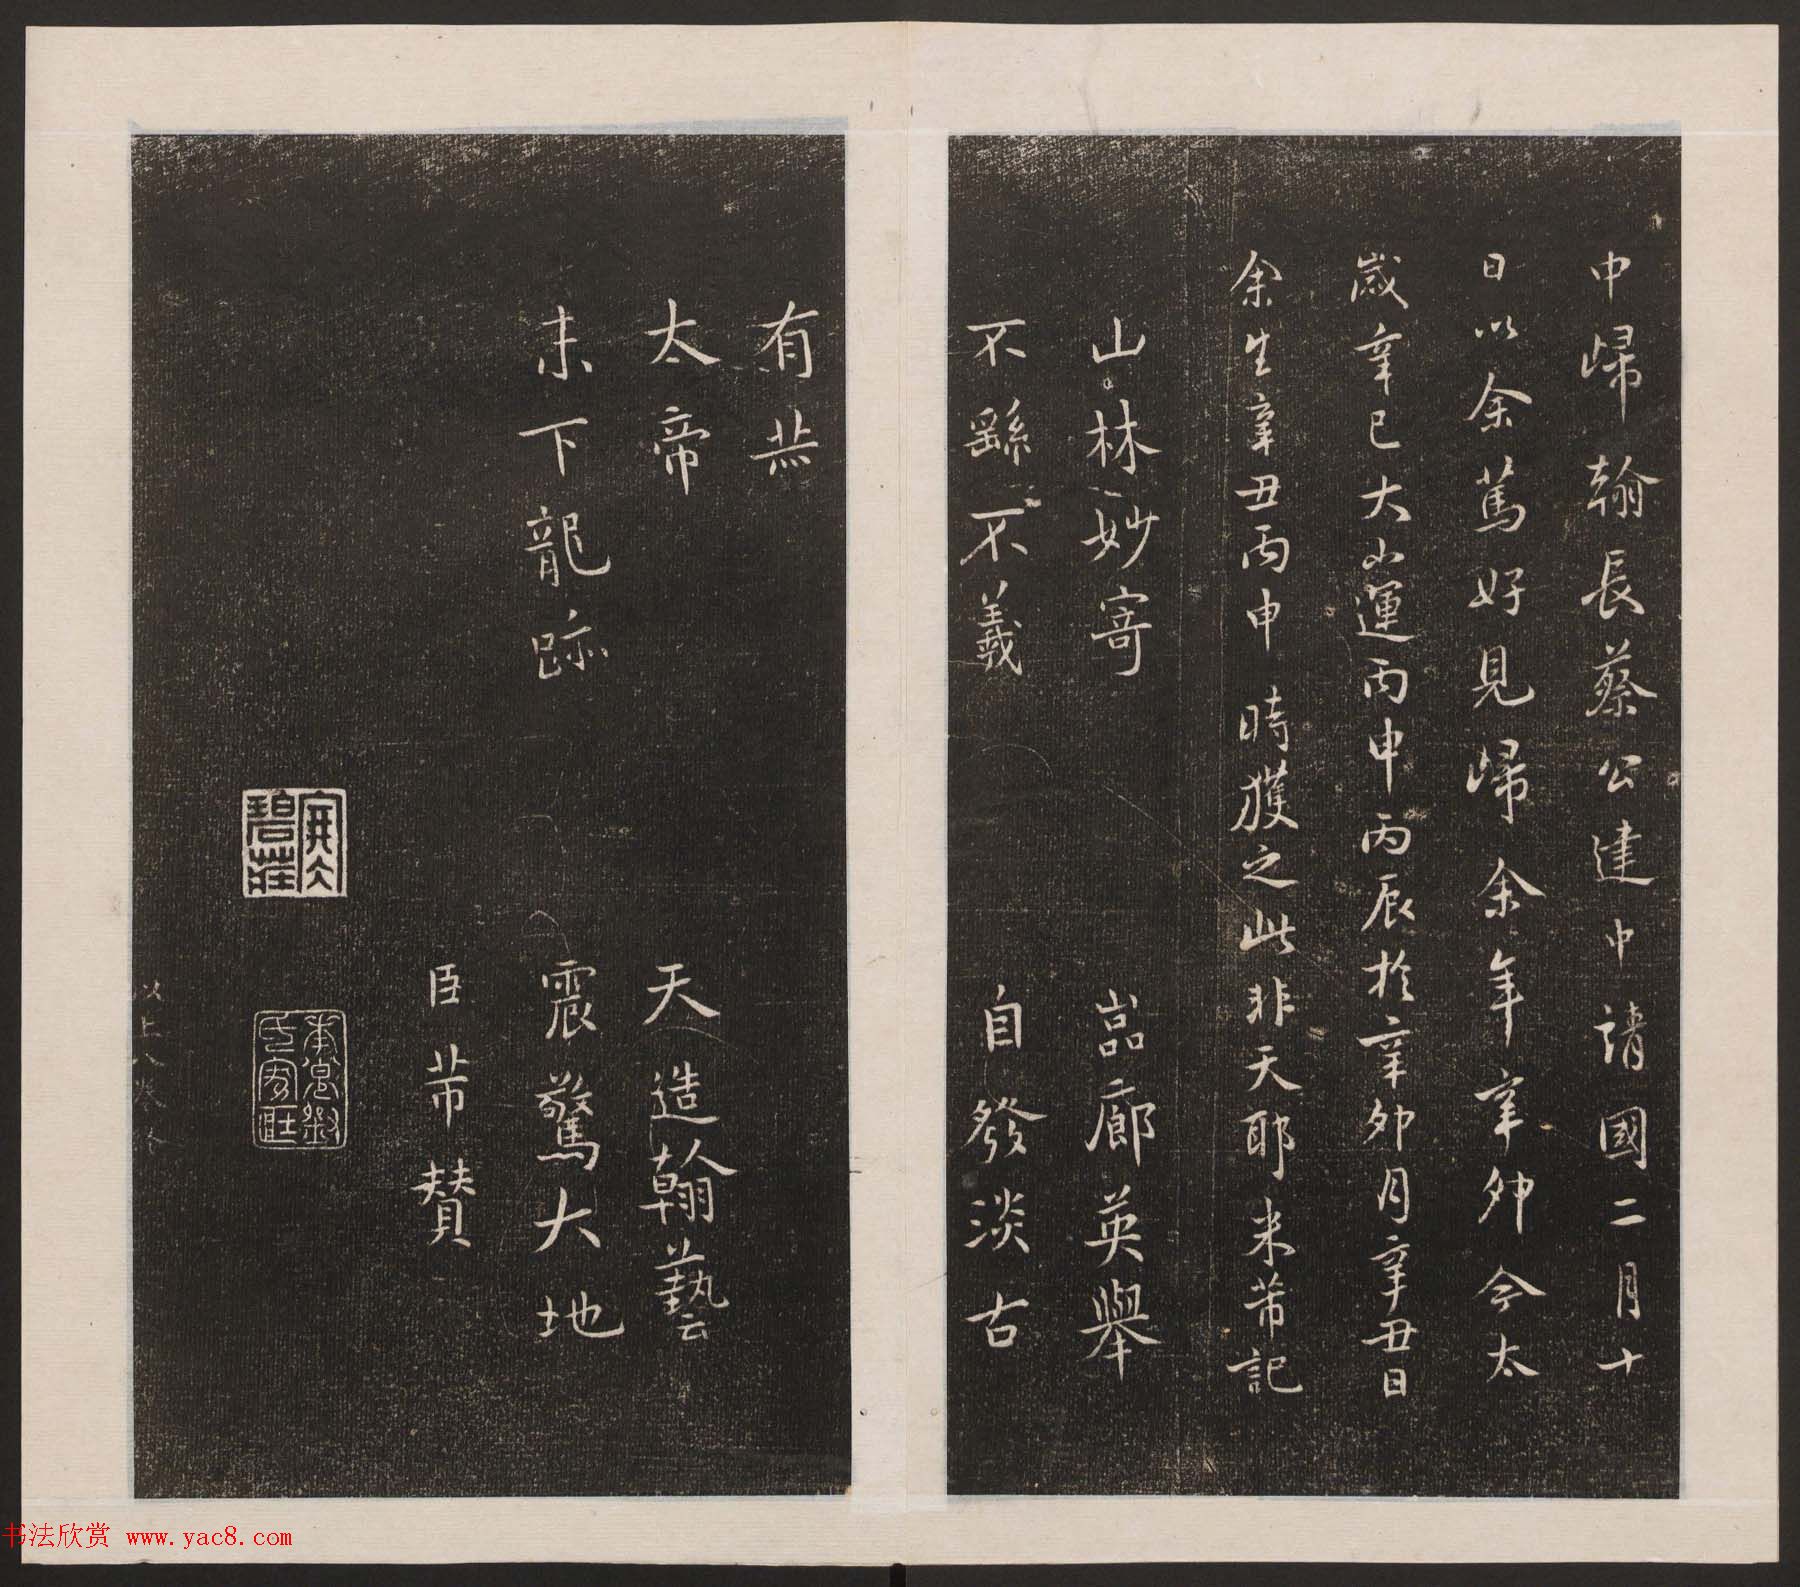 中歸翰長蔡公建中靖國二月十
日以余篤好見歸余年辛卯今太
歲辛巳大小運丙申丙辰於辛卯月辛丑日
余生辛丑丙申時獲之此非天耶米芾記
山林妙寄
巖廊英舉
不繇不羲
自發淡古
有赫
太帝
天造翰藝
末下龍跡
震驚大地
臣芾贊
以上八
书法欣赏 www.yac8.com